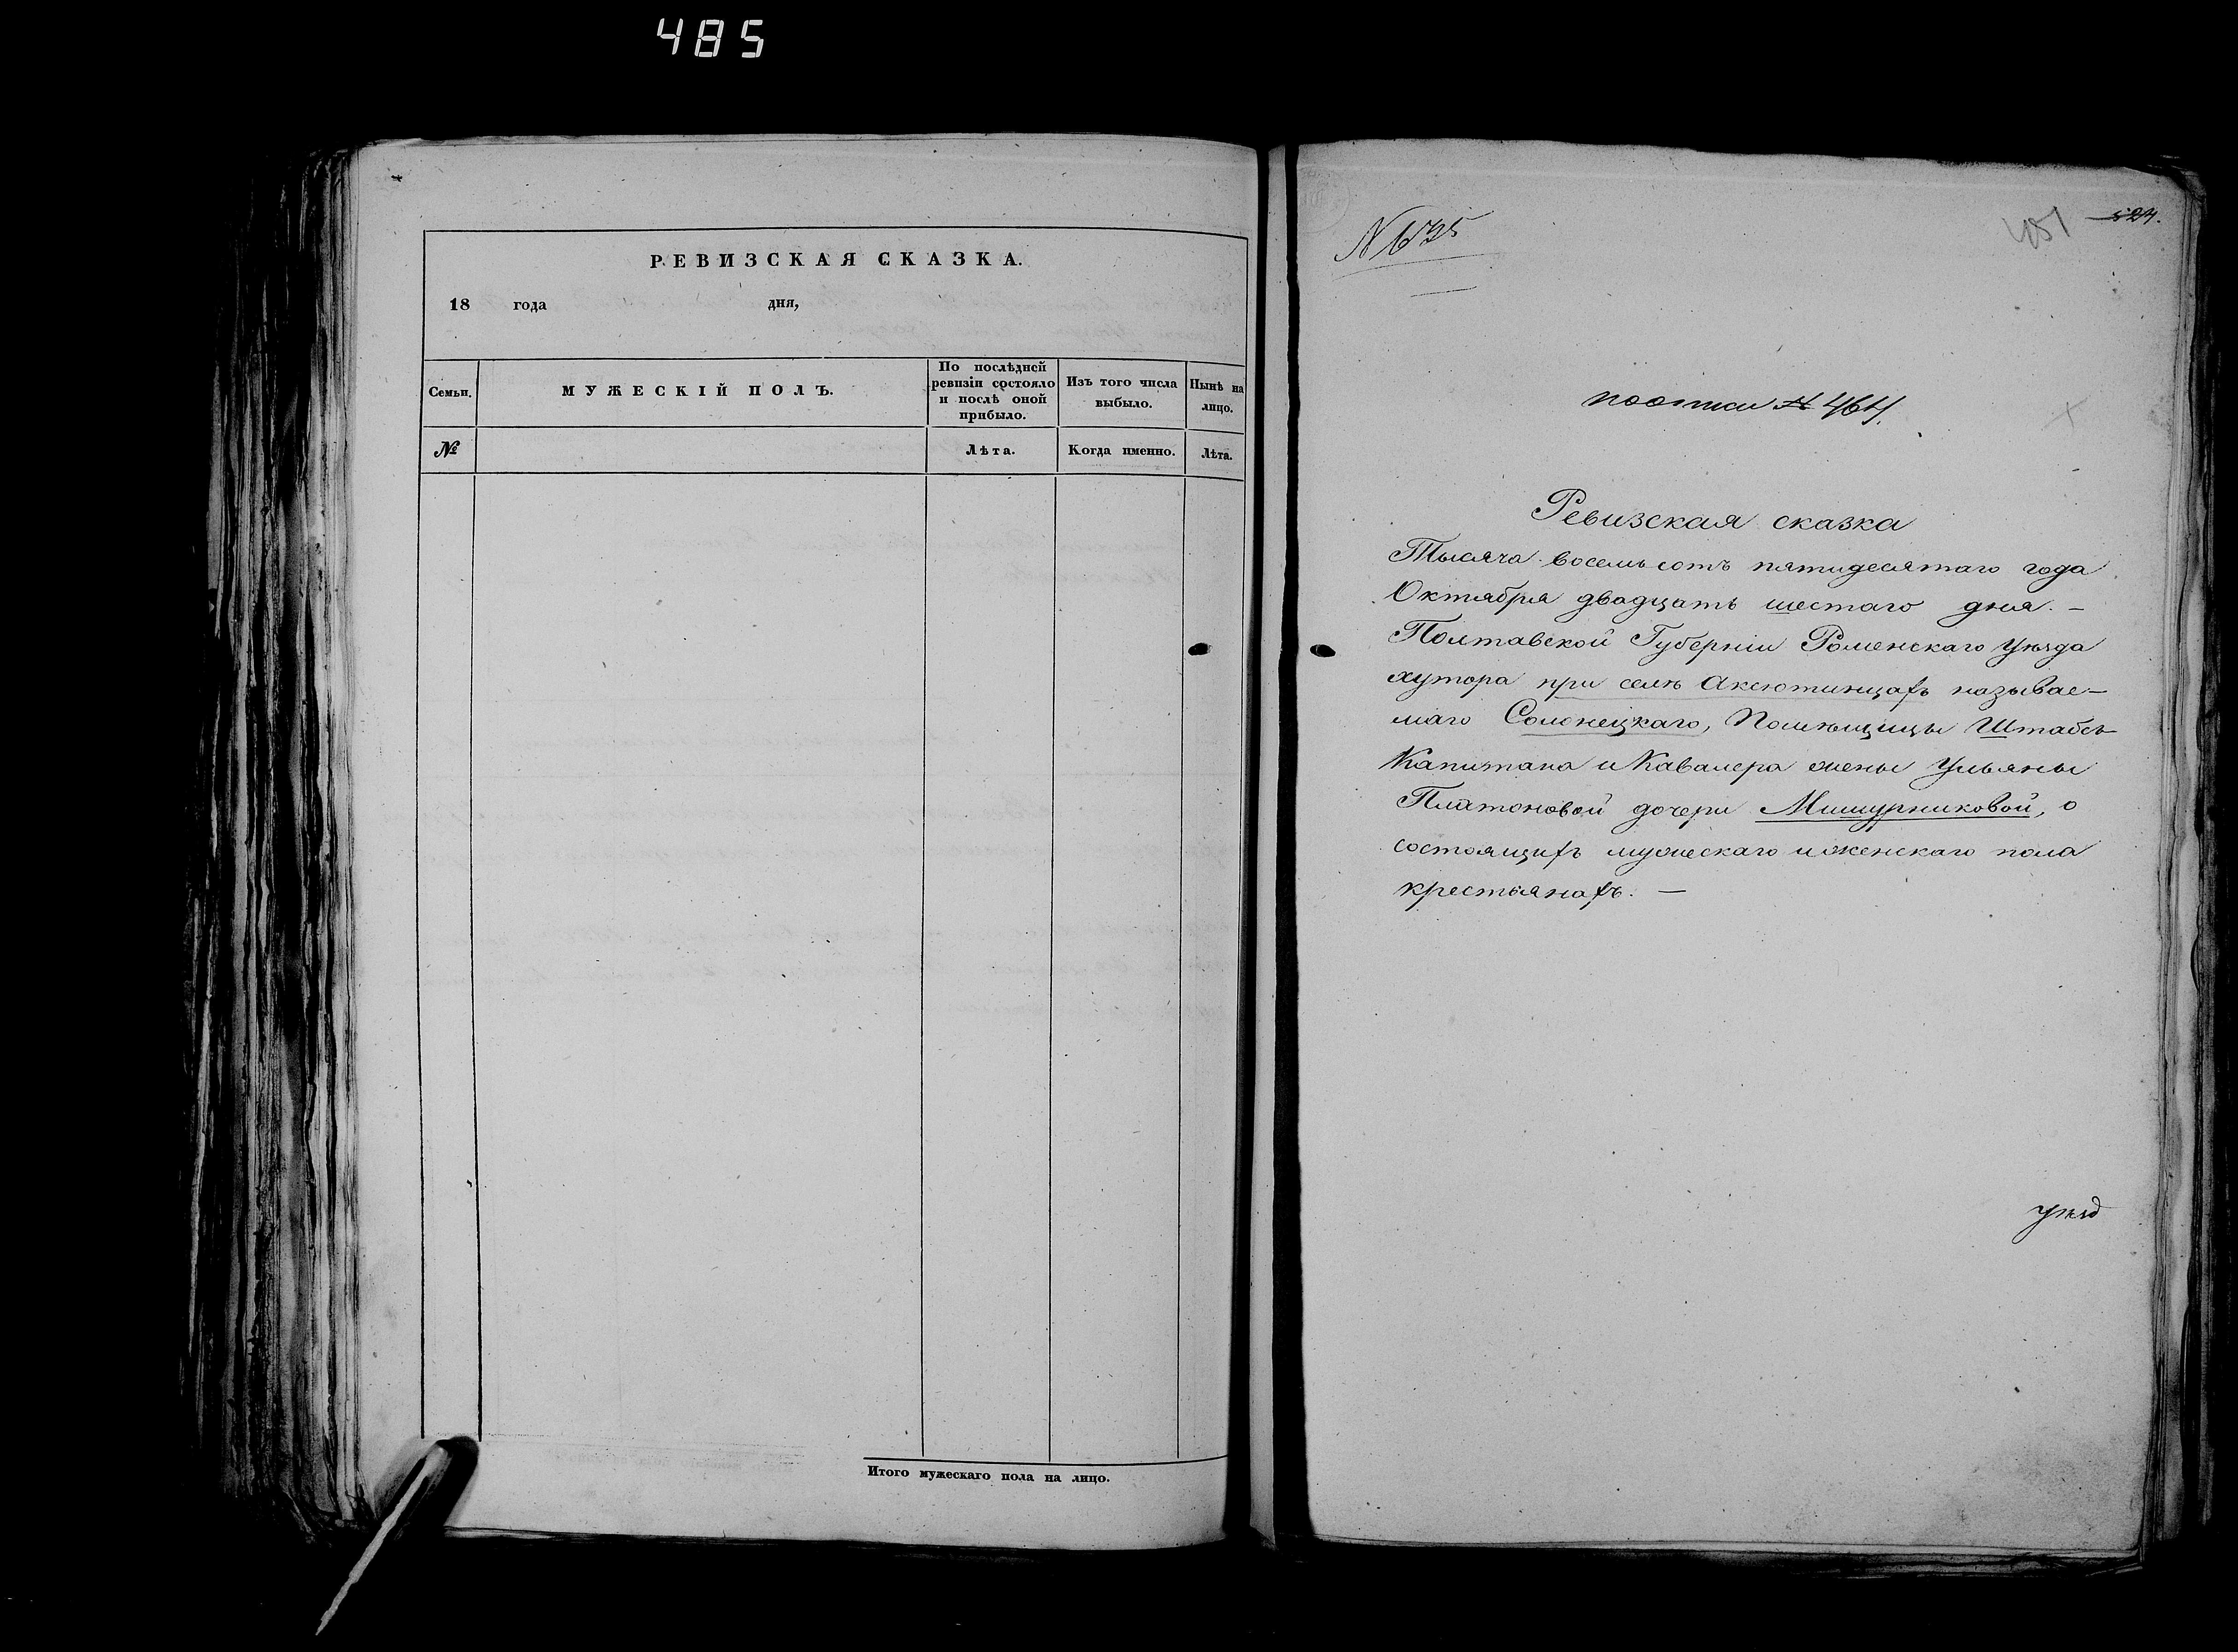 485
РЕВИЗСКАЯ СКАЗКА.
18 года дня,
Семьи.
МУЖЕСКІЙ ПОЛЪ.
По послѣдней
ревизіи состояло
и послѣ оной
прибыло.
Изъ того числа
выбыло.
Нынѣ на
лицо.
№
Лѣта.
Когда именно.
Лѣта.
Итого мужескаго пола на лицо.
N 635
451
524.
поописи № 464.
Ревизская сказка
Тысяча восемьсотъ пятидесятаго года
Октября двадцать шестаго дня. –
Полтавской Губерніи Роменскаго Уѣзда
хутора при селѣ Аксютинцахъ называе–
маго Солонецкаго, Помѣщицы Штабсъ
Капитана и Кавалера жены Ульяны
Платоновой дочери Мишурниковой, о
состоящихъ мужескаго и женскаго пола
крестьянахъ. —